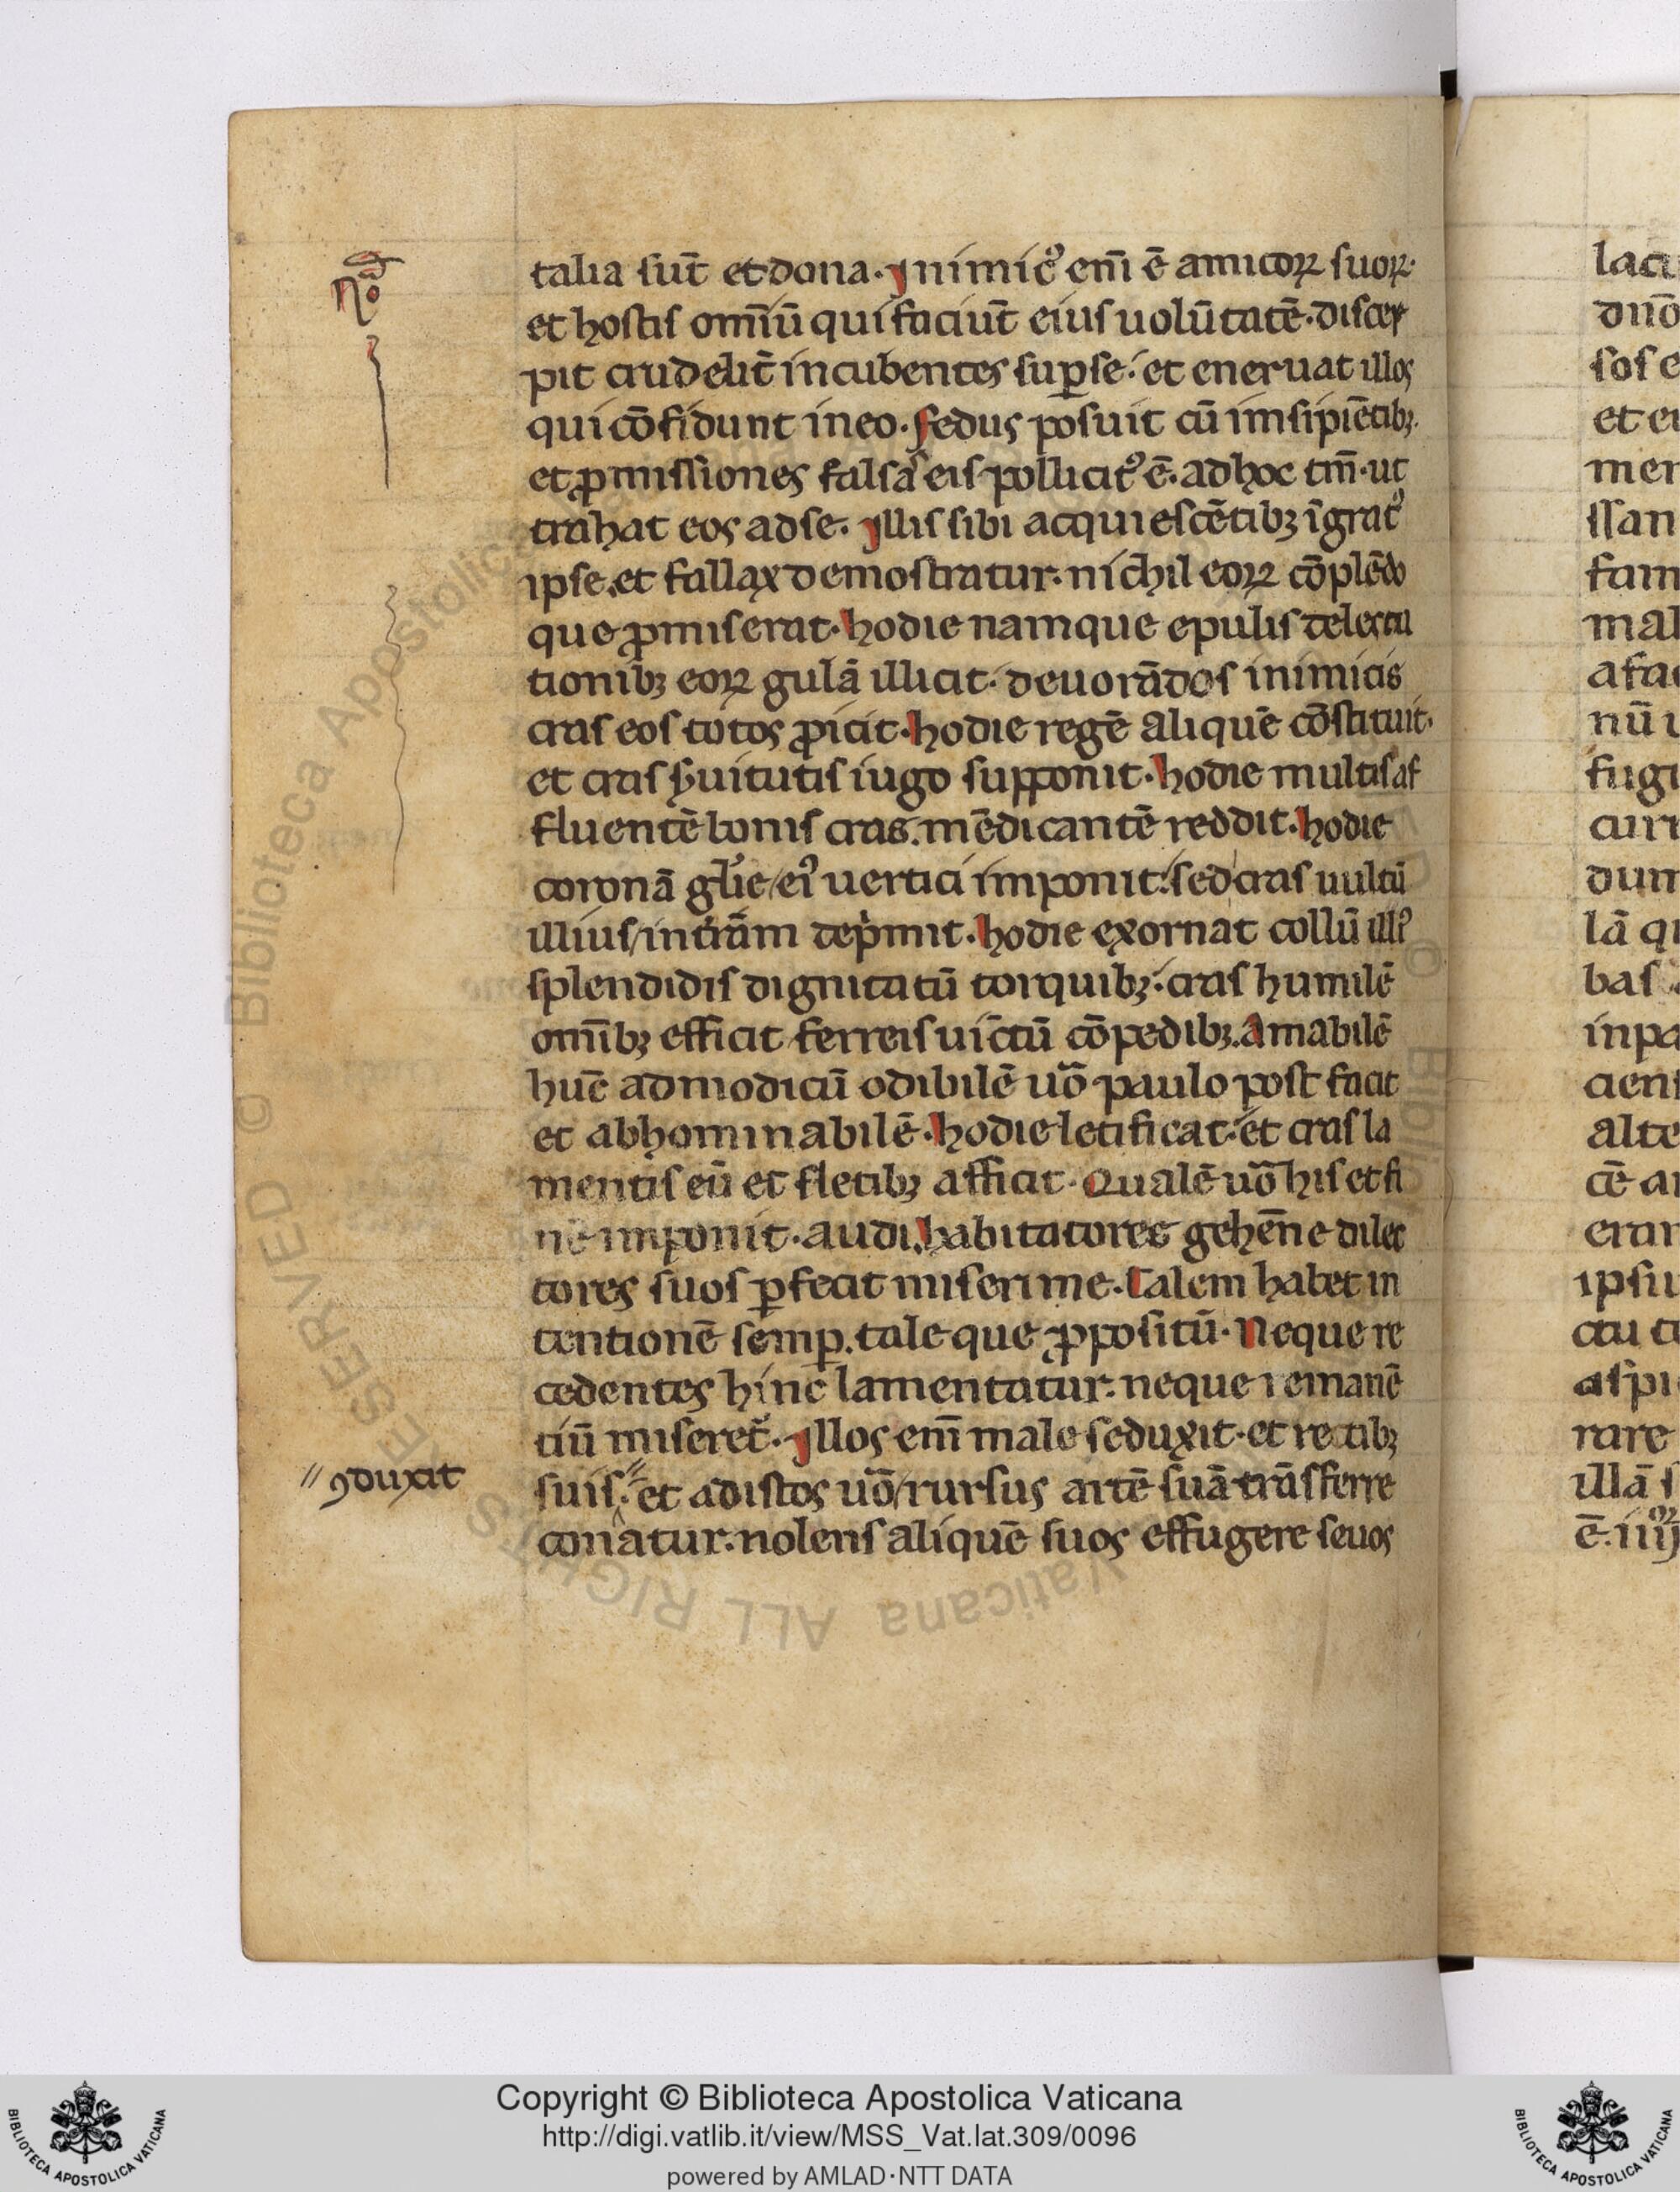 talia sūt et dona. Inimic᷒ em̄ ē amicoꝝ suoꝝ.
et hostis om̄iū qui faciūt eius uolūtatē. discer
pit crudelit̄ incubentes sup̱ se. et eneruat illos
qui cōfidunt in eo. Fedus posuit cū imsipiētibꝫ.
et ꝓmissiones falsas eis pollicit᷒ ē. ad hoc tm̄. ut
trahat eos ad se. Illis sibi acquiescētibꝫ īgrat᷒
ipse. et fallax demostratur. nichil eoꝝ cōplēdo
que ꝓmiserat. hodie namque epulis delecta
tionibꝫ eoꝝ gulā illicit. deuorādos inimicis
cras eos totos ꝓicit. hodie regē aliquē cōstituit.
et cras ẜuitutis iugo supponit. hodie multis af
fluentē bonis cras. mēdicantē reddit. hodie
coronā gl̄ie ei᷒ uertici imponit. sed cras uultū
illius in t̄rām dep̓mit. hodie exornat collū illi᷒
splendidis dignitatū torquibꝫ. cras humilē
om̄ibꝫ efficit ferreis uīctū cōpedibꝫ. amabilē
hūc ad modicū odibilē uō paulo post facit
et abhominabilē. hodie letificat. et cras la
mentis eū et fletibꝫ afficit. Qualē uō his et fi
nē imponit. audi. habitatores gehēne dilec
tores suos ꝑfecit miserime. Talem habet in
tentionē semꝑ. tale que ꝓpositū. Neque re
cedentes hinc lamentatur. neque remanē
tiū miseret᷒. Illos em̄ male seduxit. et retibꝫ
suis. et ad istos uō rursus artē suā trāsferre
conatur. nolens aliquē suos effugere seuos
nō
// ꝯduxit
lacu
duō
sos e
et e
mer
issan
fam
mal
a fac
nū u
fugi
curr
dum
lā q
bas
in pa
cien
alte
cē a
eran
ipsu
aspi
rare
illā s
Copyright © Biblioteca Apostolica Vaticana
http://digi.vatlib.it/view/MSS_Vat.lat.309/0096
powered by AMLAD·NTT DATA
BIBLIOTECA APOSTOLICA VATICANA
BIBLIOTECA APOSTOLICA VATICANA